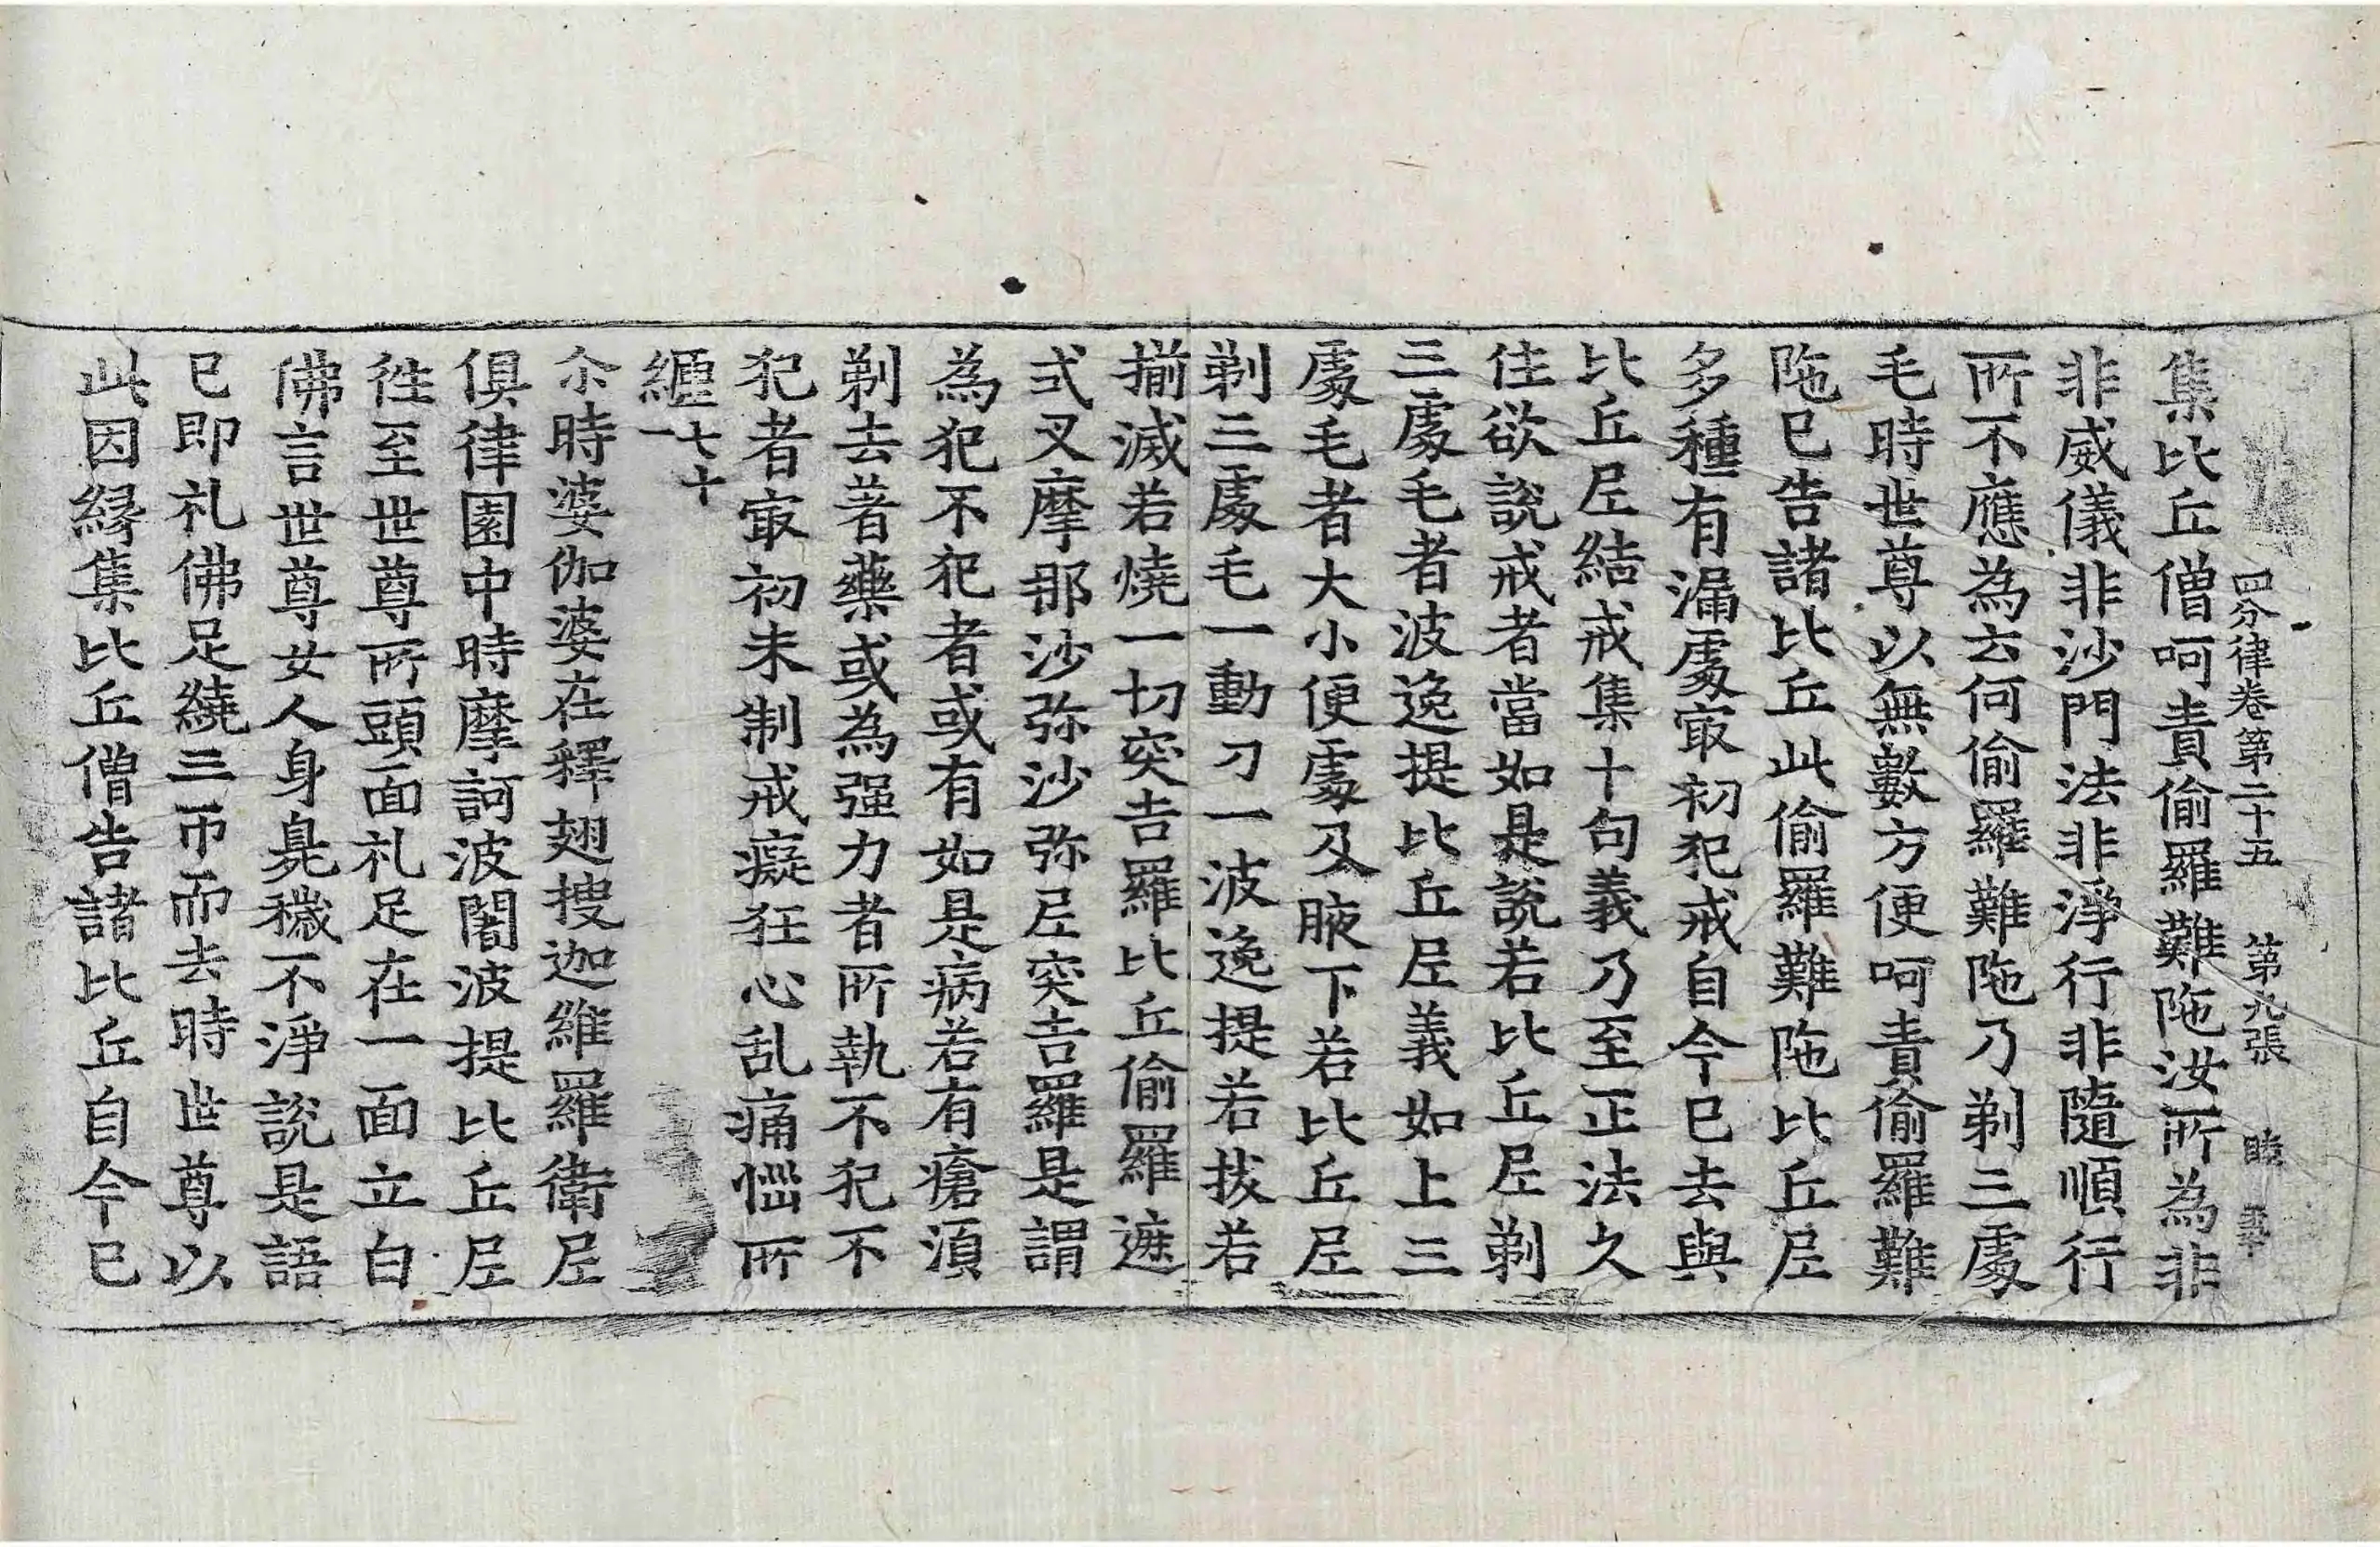 四分律卷第二十五 第九張 睦
集比丘僧呵責偷羅難陁汝所為非
非威儀非沙門法非淨行非隨順行
所不應為云何偷羅難陁乃剃三處
毛時世尊以無數方便呵責偷羅難
陁已告諸比丘此偷羅難陁比丘尼
多種有漏處㝡初犯戒自今已去與
比丘尼結戒集十句義乃至正法久
住欲說戒者當如是說若比丘尼剃
三處毛者波逸提比丘尼義如上三
處毛者大小便處及腋下若比丘尼
剃三處毛一動刀一波逸提若拔若
揃滅若燒一切突吉羅比丘偷羅遮
式叉摩那沙弥沙弥尼突吉羅是謂
為犯不犯者或有如是病若有瘡湏
剃去著藥或為强力者所執不犯不
犯者㝡初未制戒癡狂心乱痛惱所
纏七十一
尒時婆伽婆在釋翅搜迦維羅衛尼
俱律園中時摩訶波闍波提比丘尼
徃至世尊所頭面礼足在一面立白
佛言世尊女人身臭穢不淨說是語
已即礼佛足繞三帀而去時世尊以
此因縁集比丘僧告諸比丘自今已